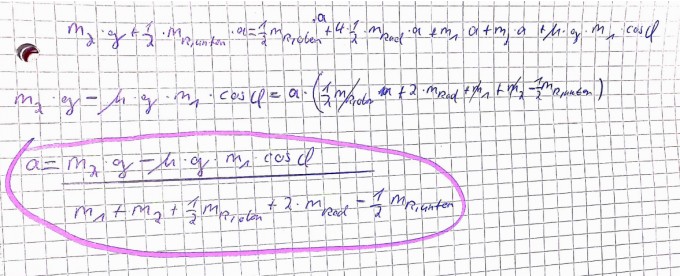 m₂ · g + 1/2 · m_R,unten · a = 1/2 m_R,oben · a + 4 · 1/2 · m_Rad · a + m₁ · a + m₂ · a + μ · g · m₁ · cos φ
m₂ · g - μ · g · m₁ · cos φ = a · (1/2 m_R,oben + 2 · m_Rad + m₁ + m₂ - 1/2 m_R,unten)
a = m₂ · g - μ · g · m₁ cos φ
m₁ + m₂ + 1/2 m_R,oben + 2 · m_Rad - 1/2 m_R,unten